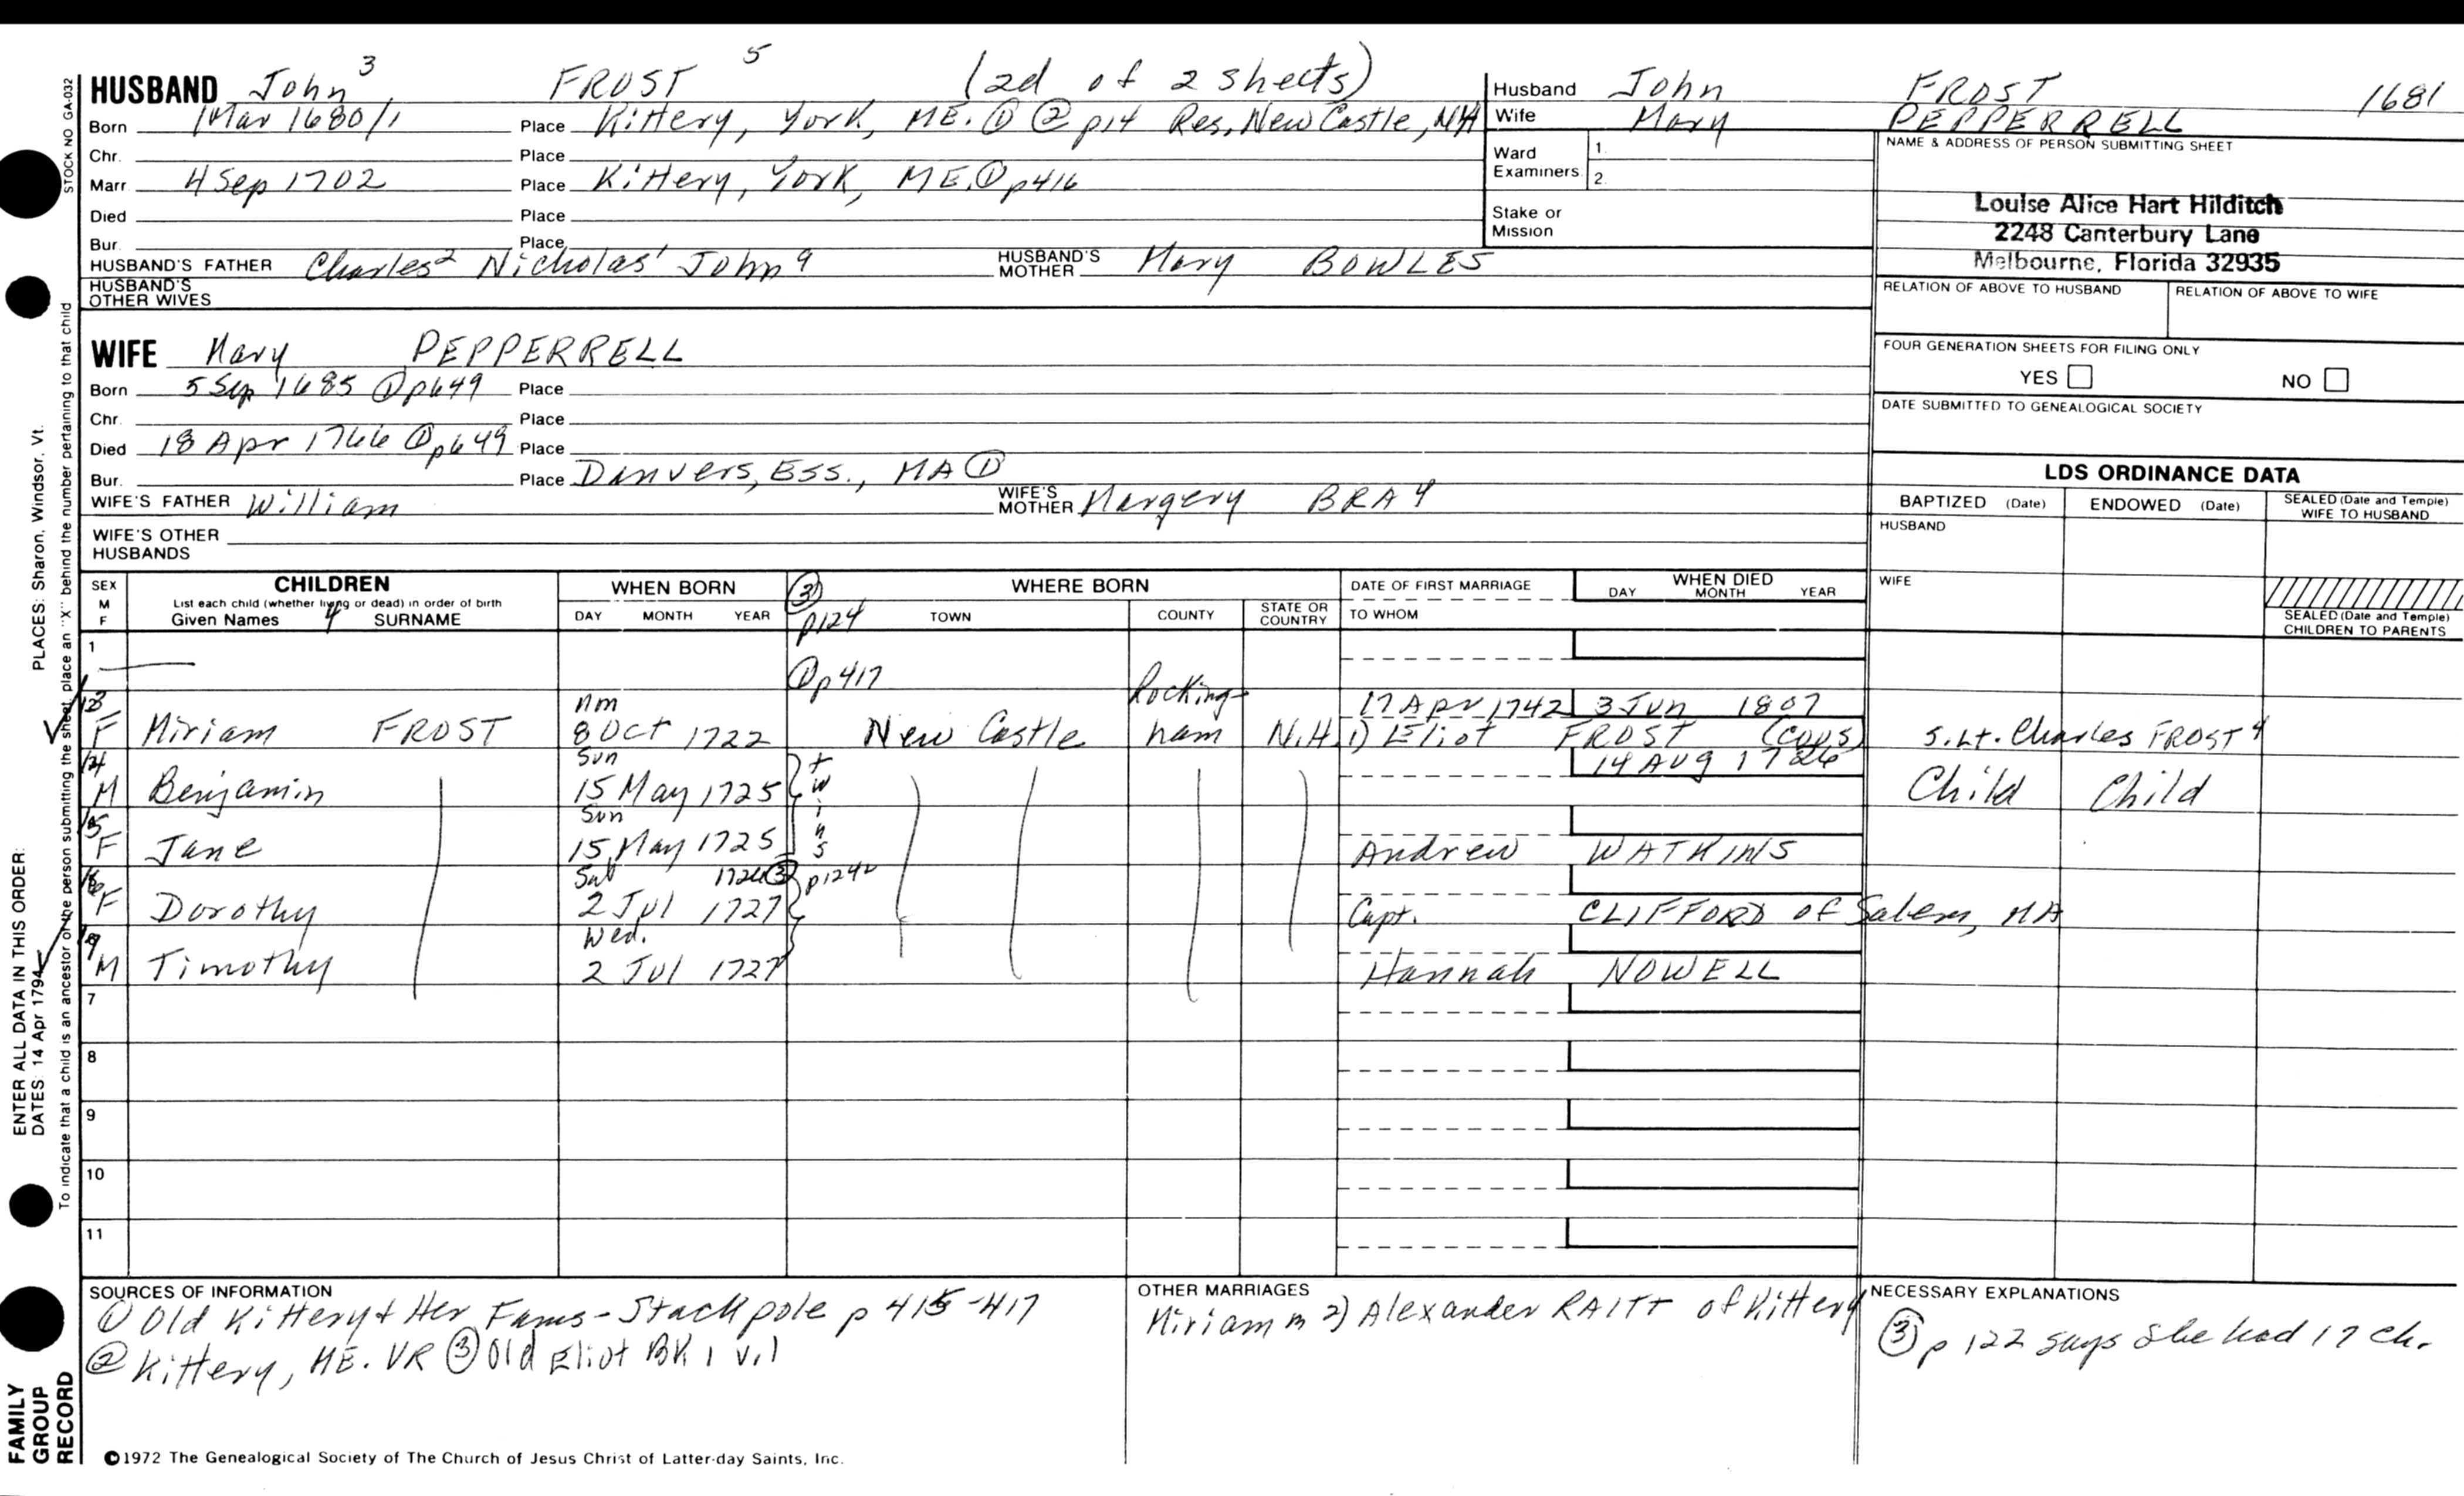 STOCK NO GA-032
HUSBAND John 3 FROST 5 (2d of 2 sheets)
Born 1 Mar 1680/1 Place Kittery, York, ME. ① ② p14 Res, New Castle, NH
Chr. Place
Marr. 4 Sep 1702 Place Kittery, York, ME. ① p416
Died Place
Bur. Place
HUSBAND'S FATHER Charles 2 Nicholas 1 John 9 HUSBAND'S MOTHER Mary BOWLES
HUSBAND'S OTHER WIVES
Husband John FROST 1681
Wife Mary PEPPERRELL
Ward Examiners 1. 2.
Stake or Mission
NAME & ADDRESS OF PERSON SUBMITTING SHEET
Louise Alice Hart Hilditch
2248 Canterbury Lane
Melbourne, Florida 32935
RELATION OF ABOVE TO HUSBAND RELATION OF ABOVE TO WIFE
FOUR GENERATION SHEETS FOR FILING ONLY
YES NO
DATE SUBMITTED TO GENEALOGICAL SOCIETY
WIFE Mary PEPPERRELL
Born 5 Sep 1685 ① p649 Place
Chr. Place
Died 18 Apr 1766 ① p649 Place
Bur. Place Danvers, Ess., MA ①
WIFE'S FATHER William WIFE'S MOTHER Margery BRAY
WIFE'S OTHER HUSBANDS
LDS ORDINANCE DATA
BAPTIZED (Date) ENDOWED (Date) SEALED (Date and Temple) WIFE TO HUSBAND
HUSBAND
WIFE
SEALED (Date and Temple) CHILDREN TO PARENTS
SEX M F CHILDREN WHEN BORN ③ p124 WHERE BORN DATE OF FIRST MARRIAGE WHEN DIED
List each child (whether living or dead) in order of birth
Given Names 4 SURNAME DAY MONTH YEAR TOWN COUNTY STATE OR COUNTRY TO WHOM DAY MONTH YEAR
1 ① p417
13 F Miriam FROST 8 Oct 1722 New Castle Rockingham N.H. 17 Apr 1742 1) Eliot FROST (cous) 3 Jun 1807 S. Lt. Charles FROST 4
14 M Benjamin Sun 15 May 1725 twins 14 Aug 1726 Child Child
15 F Jane Sun 15 May 1725 Andrew WATKINS
16 F Dorothy Sat 2 Jul 1727 1726 ③ p124 Capt. CLIFFORD of Salem, MA
M Timothy Wed. 2 Jul 1727 Hannah NOWELL
7
8
9
10
11
SOURCES OF INFORMATION
① Old Kittery + Her Fams - Stackpole p 415-417
② Kittery, ME. VR ③ Old Eliot BK 1 v.1
OTHER MARRIAGES
Miriam m 2) Alexander RAITT of Kittery
NECESSARY EXPLANATIONS
③ p 122 says she had 17 ch.
©1972 The Genealogical Society of The Church of Jesus Christ of Latter-day Saints, Inc.
FAMILY GROUP RECORD
ENTER ALL DATA IN THIS ORDER:
DATES: 14 Apr 1794
PLACES: Sharon, Windsor, Vt.
To indicate that a child is an ancestor of the person submitting the sheet, place an "X" behind the number pertaining to that child